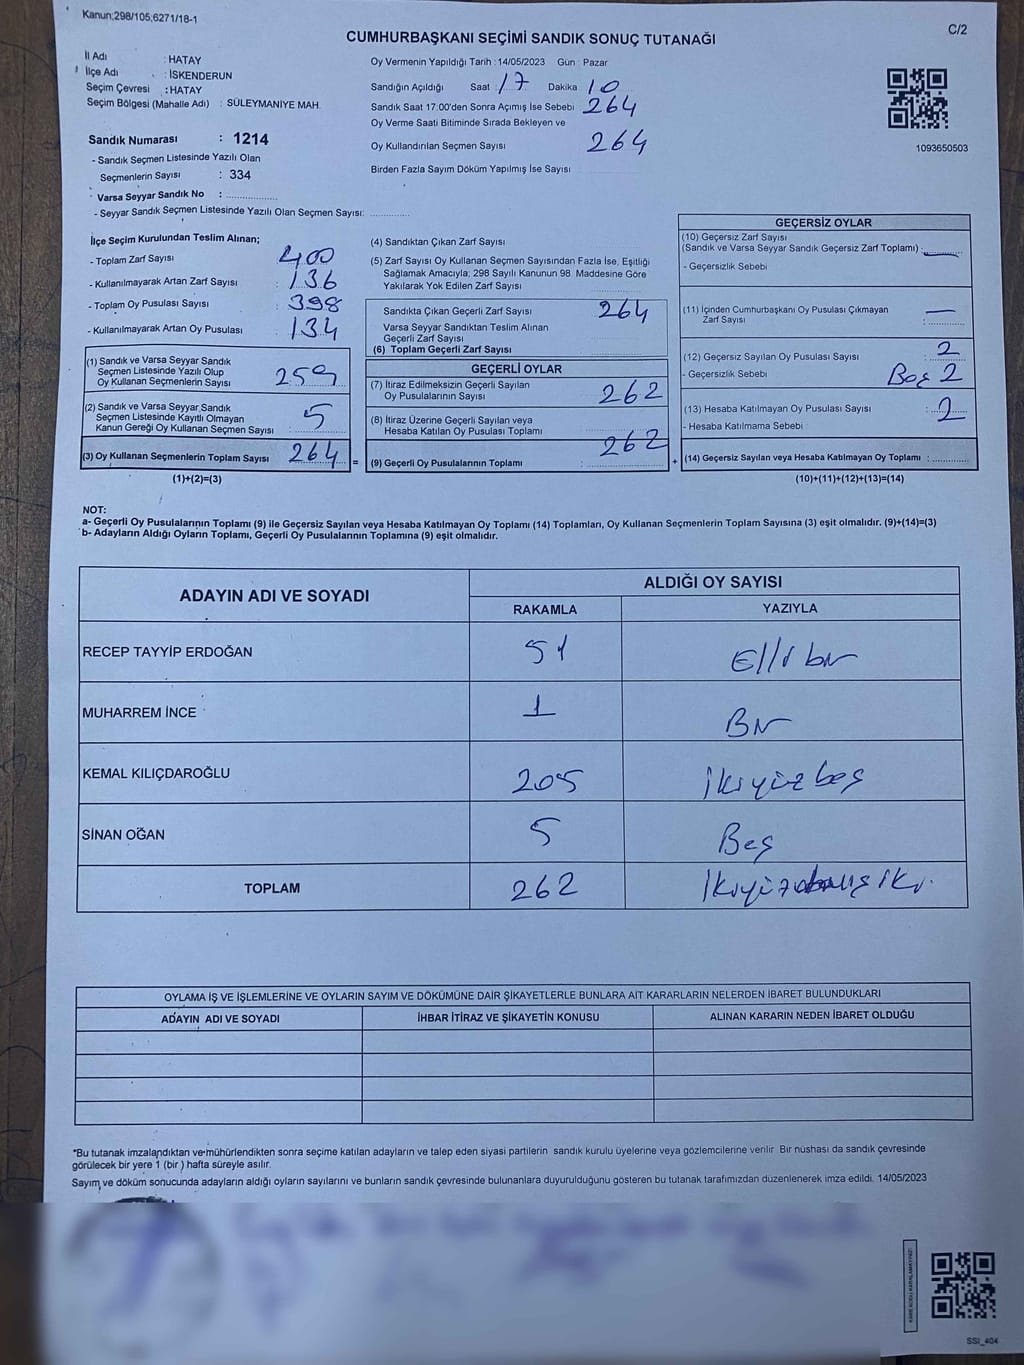 Kanun;298/105,6271/18-1
C/2
CUMHURBAŞKANI SEÇİMİ SANDIK SONUÇ TUTANAĞI
İl Adı : HATAY
İlçe Adı : İSKENDERUN
Seçim Çevresi : HATAY
Seçim Bölgesi (Mahalle Adı) : SÜLEYMANİYE MAH.
Oy Vermenin Yapıldığı Tarih : 14/05/2023 Gün : Pazar
Sandığın Açıldığı Saat 17 Dakika 10
Sandık Saat 17:00'den Sonra Açımış İse Sebebi 264
Oy Verme Saati Bitiminde Sırada Bekleyen ve
Oy Kullandırılan Seçmen Sayısı 264
Birden Fazla Sayım Döküm Yapılmış İse Sayısı
1093650503
Sandık Numarası : 1214
- Sandık Seçmen Listesinde Yazılı Olan
Seçmenlerin Sayısı : 334
Varsa Seyyar Sandık No :
- Seyyar Sandık Seçmen Listesinde Yazılı Olan Seçmen Sayısı:
İlçe Seçim Kurulundan Teslim Alınan;
- Toplam Zarf Sayısı : 400
- Kullanılmayarak Artan Zarf Sayısı : 136
- Toplam Oy Pusulası Sayısı : 398
- Kullanılmayarak Artan Oy Pusulası : 134
(1) Sandık ve Varsa Seyyar Sandık
Seçmen Listesinde Yazılı Olup
Oy Kullanan Seçmenlerin Sayısı 259
(2) Sandık ve Varsa Seyyar Sandık
Seçmen Listesinde Kayıtlı Olmayan
Kanun Gereği Oy Kullanan Seçmen Sayısı : 5
(3) Oy Kullanan Seçmenlerin Toplam Sayısı : 264 =
(1)+(2)=(3)
(4) Sandıktan Çıkan Zarf Sayısı
(5) Zarf Sayısı Oy Kullanan Seçmen Sayısından Fazla İse, Eşitliği
Sağlamak Amacıyla; 298 Sayılı Kanunun 98. Maddesine Göre
Yakılarak Yok Edilen Zarf Sayısı
Sandıkta Çıkan Geçerli Zarf Sayısı 264
Varsa Seyyar Sandıktan Teslim Alınan
Geçerli Zarf Sayısı
(6) Toplam Geçerli Zarf Sayısı
GEÇERLİ OYLAR
(7) İtiraz Edilmeksizin Geçerli Sayılan
Oy Pusulalarının Sayısı 262
(8) İtiraz Üzerine Geçerli Sayılan veya
Hesaba Katılan Oy Pusulası Toplamı
262
(9) Geçerli Oy Pusulalarının Toplamı : +
GEÇERSİZ OYLAR
(10) Geçersiz Zarf Sayısı
(Sandık ve Varsa Seyyar Sandık Geçersiz Zarf Toplamı) :
- Geçersizlik Sebebi
(11) İçinden Cumhurbaşkanı Oy Pusulası Çıkmayan
Zarf Sayısı : —
(12) Geçersiz Sayılan Oy Pusulası Sayısı : 2
- Geçersizlik Sebebi Boş 2
(13) Hesaba Katılmayan Oy Pusulası Sayısı : 2
- Hesaba Katılmama Sebebi :
(14) Geçersiz Sayılan veya Hesaba Katılmayan Oy Toplamı :
(10)+(11)+(12)+(13)=(14)
NOT:
a- Geçerli Oy Pusulalarının Toplamı (9) ile Geçersiz Sayılan veya Hesaba Katılmayan Oy Toplamı (14) Toplamları, Oy Kullanan Seçmenlerin Toplam Sayısına (3) eşit olmalıdır. (9)+(14)=(3)
b- Adayların Aldığı Oyların Toplamı, Geçerli Oy Pusulalarının Toplamına (9) eşit olmalıdır.
ADAYIN ADI VE SOYADI
ALDIĞI OY SAYISI
RAKAMLA YAZIYLA
RECEP TAYYİP ERDOĞAN 51 Elli bir
MUHARREM İNCE 1 Bir
KEMAL KILIÇDAROĞLU 205 ikiyüz beş
SİNAN OĞAN 5 Beş
TOPLAM 262 ikiyüzaltmış iki.
OYLAMA İŞ VE İŞLEMLERİNE VE OYLARIN SAYIM VE DÖKÜMÜNE DAİR ŞİKAYETLERLE BUNLARA AİT KARARLARIN NELERDEN İBARET BULUNDUKLARI
ADAYIN ADI VE SOYADI İHBAR İTİRAZ VE ŞİKAYETİN KONUSU ALINAN KARARIN NEDEN İBARET OLDUĞU
*Bu tutanak imzalandıktan ve mühürlendikten sonra seçime katılan adayların ve talep eden siyasi partilerin sandık kurulu üyelerine veya gözlemcilerine verilir. Bir nüshası da sandık çevresinde
görülecek bir yere 1 (bir ) hafta süreyle asılır.
Sayım ve döküm sonucunda adayların aldığı oyların sayılarını ve bunların sandık çevresinde bulunanlara duyurulduğunu gösteren bu tutanak tarafımızdan düzenlenerek imza edildi. 14/05/2023
SSI_404